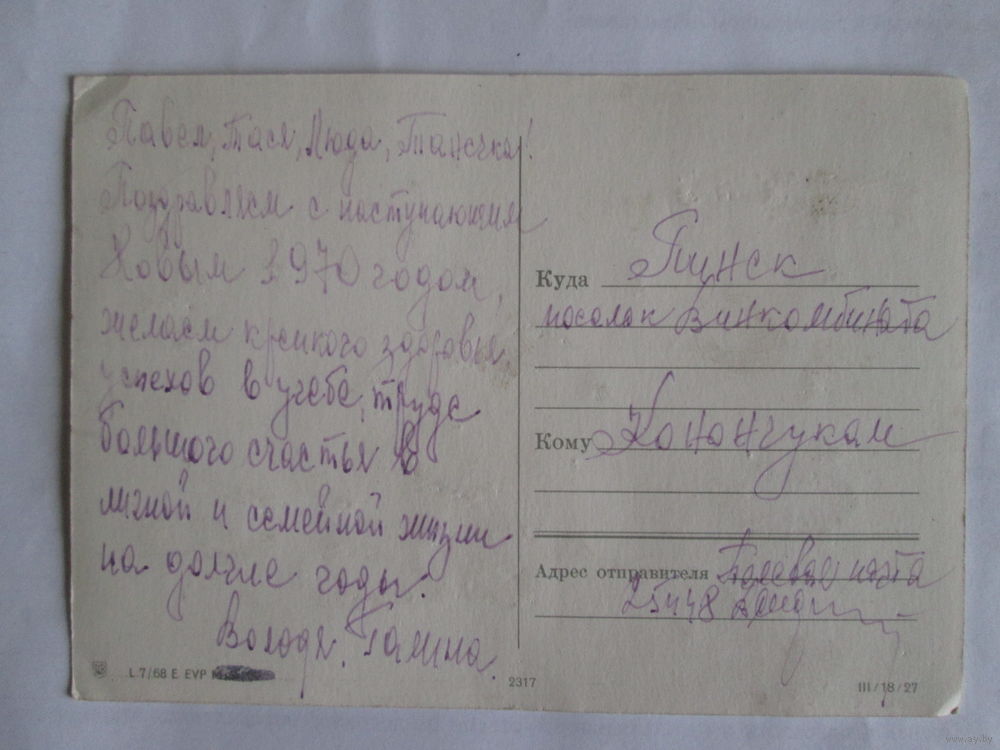 Павел, Тася, Люда, Танечка!
Поздравляем с наступающим
Новым 1970 годом,
желаем крепкого здоровья,
успехов в учебе, труде
большого счастья в
личной и семейной жизни
на долгие годы.
Володя. Галина.
L.7/68 E. EVP
2317
Куда Пинск
поселок Винкомбината
Кому Конончукам
Адрес отправителя Полевая почта
25448
III/18/27
www.ay.by